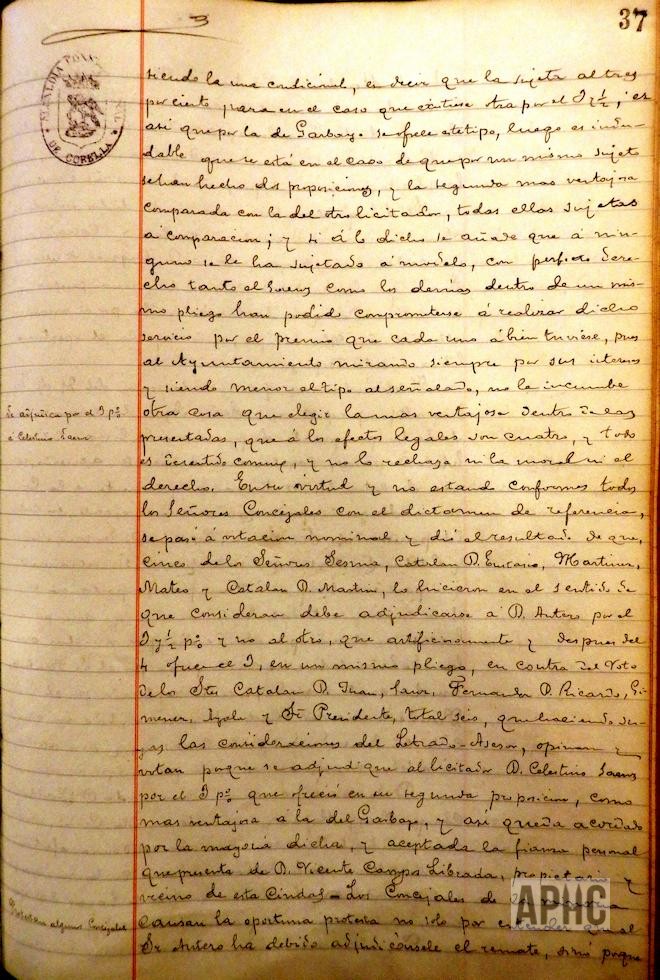 3
37
ALCALDIA
DE CORELLA
siendo la una condicional, es decir que la sujeta al tres
por ciento para en el caso que existiese otra por el 3 y ½; es
así que por la de Garbayo se ofrece este tipo, luego es indu-
dable que se está en el caso de que por un mismo sujeto
se han hecho dos proposiciones, y la segunda mas ventajosa
comparada con la del otro licitador, todas ellas sujetas
a comparacion; y si á lo dicho se añade que á nin-
guno se le ha sujetado á modelo, con perfecto dere-
cho tanto el Saenz como los demás dentro de un mis-
mo pliego han podido comprometerse á realizar dicho
servicio por el premio que cada uno á bien tuviese, pues
al Ayuntamiento mirando siempre por sus intereses
y siendo menor el tipo al señalado, no le incumbe
Se adjudica por el 3 p%
otra cosa que elegir la mas ventajosa dentro de las
á Celestino Saenz
presentadas, que á los efectos legales son cuatro, y todo
es de sentido comun, y no lo rechaza ni la moral ni el
derecho. En su virtud y no estando conformes todos
los Señores Concejales con el dictamen de referencia,
se pasó á votacion nominal y dió el resultado de que,
cinco de los Señores Sesma, Catalan D. Eustasio, Martinez,
Mateo y Catalan D. Martin, lo hicieron en el sentido de
que consideran debe adjudicarse á D. Antero por el
3 y ½ p% y no al otro, que artificiosamente y despues del
4 ofrece el 3, en un mismo pliego, en contra del voto
de los Sres Catalan D. Juan, Sanz, Fernandez D. Ricardo, Gi-
menez, Ayala y Sr. Presidente, total seis, que haciendo su-
yas las consideraciones del Letrado-Asesor, opinan y
votan porque se adjudique al licitador D. Celestino Saenz
por el 3 p% que ofreció en su segunda proposicion, como
mas ventajosa á la del Garbayo, y así queda acordado
por la mayoria dicha, y aceptada la fianza personal
que presenta de D. Vicente Campos Librada, propietario y
vecino de esta Ciudad = Los Concejales de la minoria
Protestan algunos Concejales
causan la oportuna protesta no solo por entender que al
Sr. Antero ha debido adjudicársele el remate, sinó porque
APHC